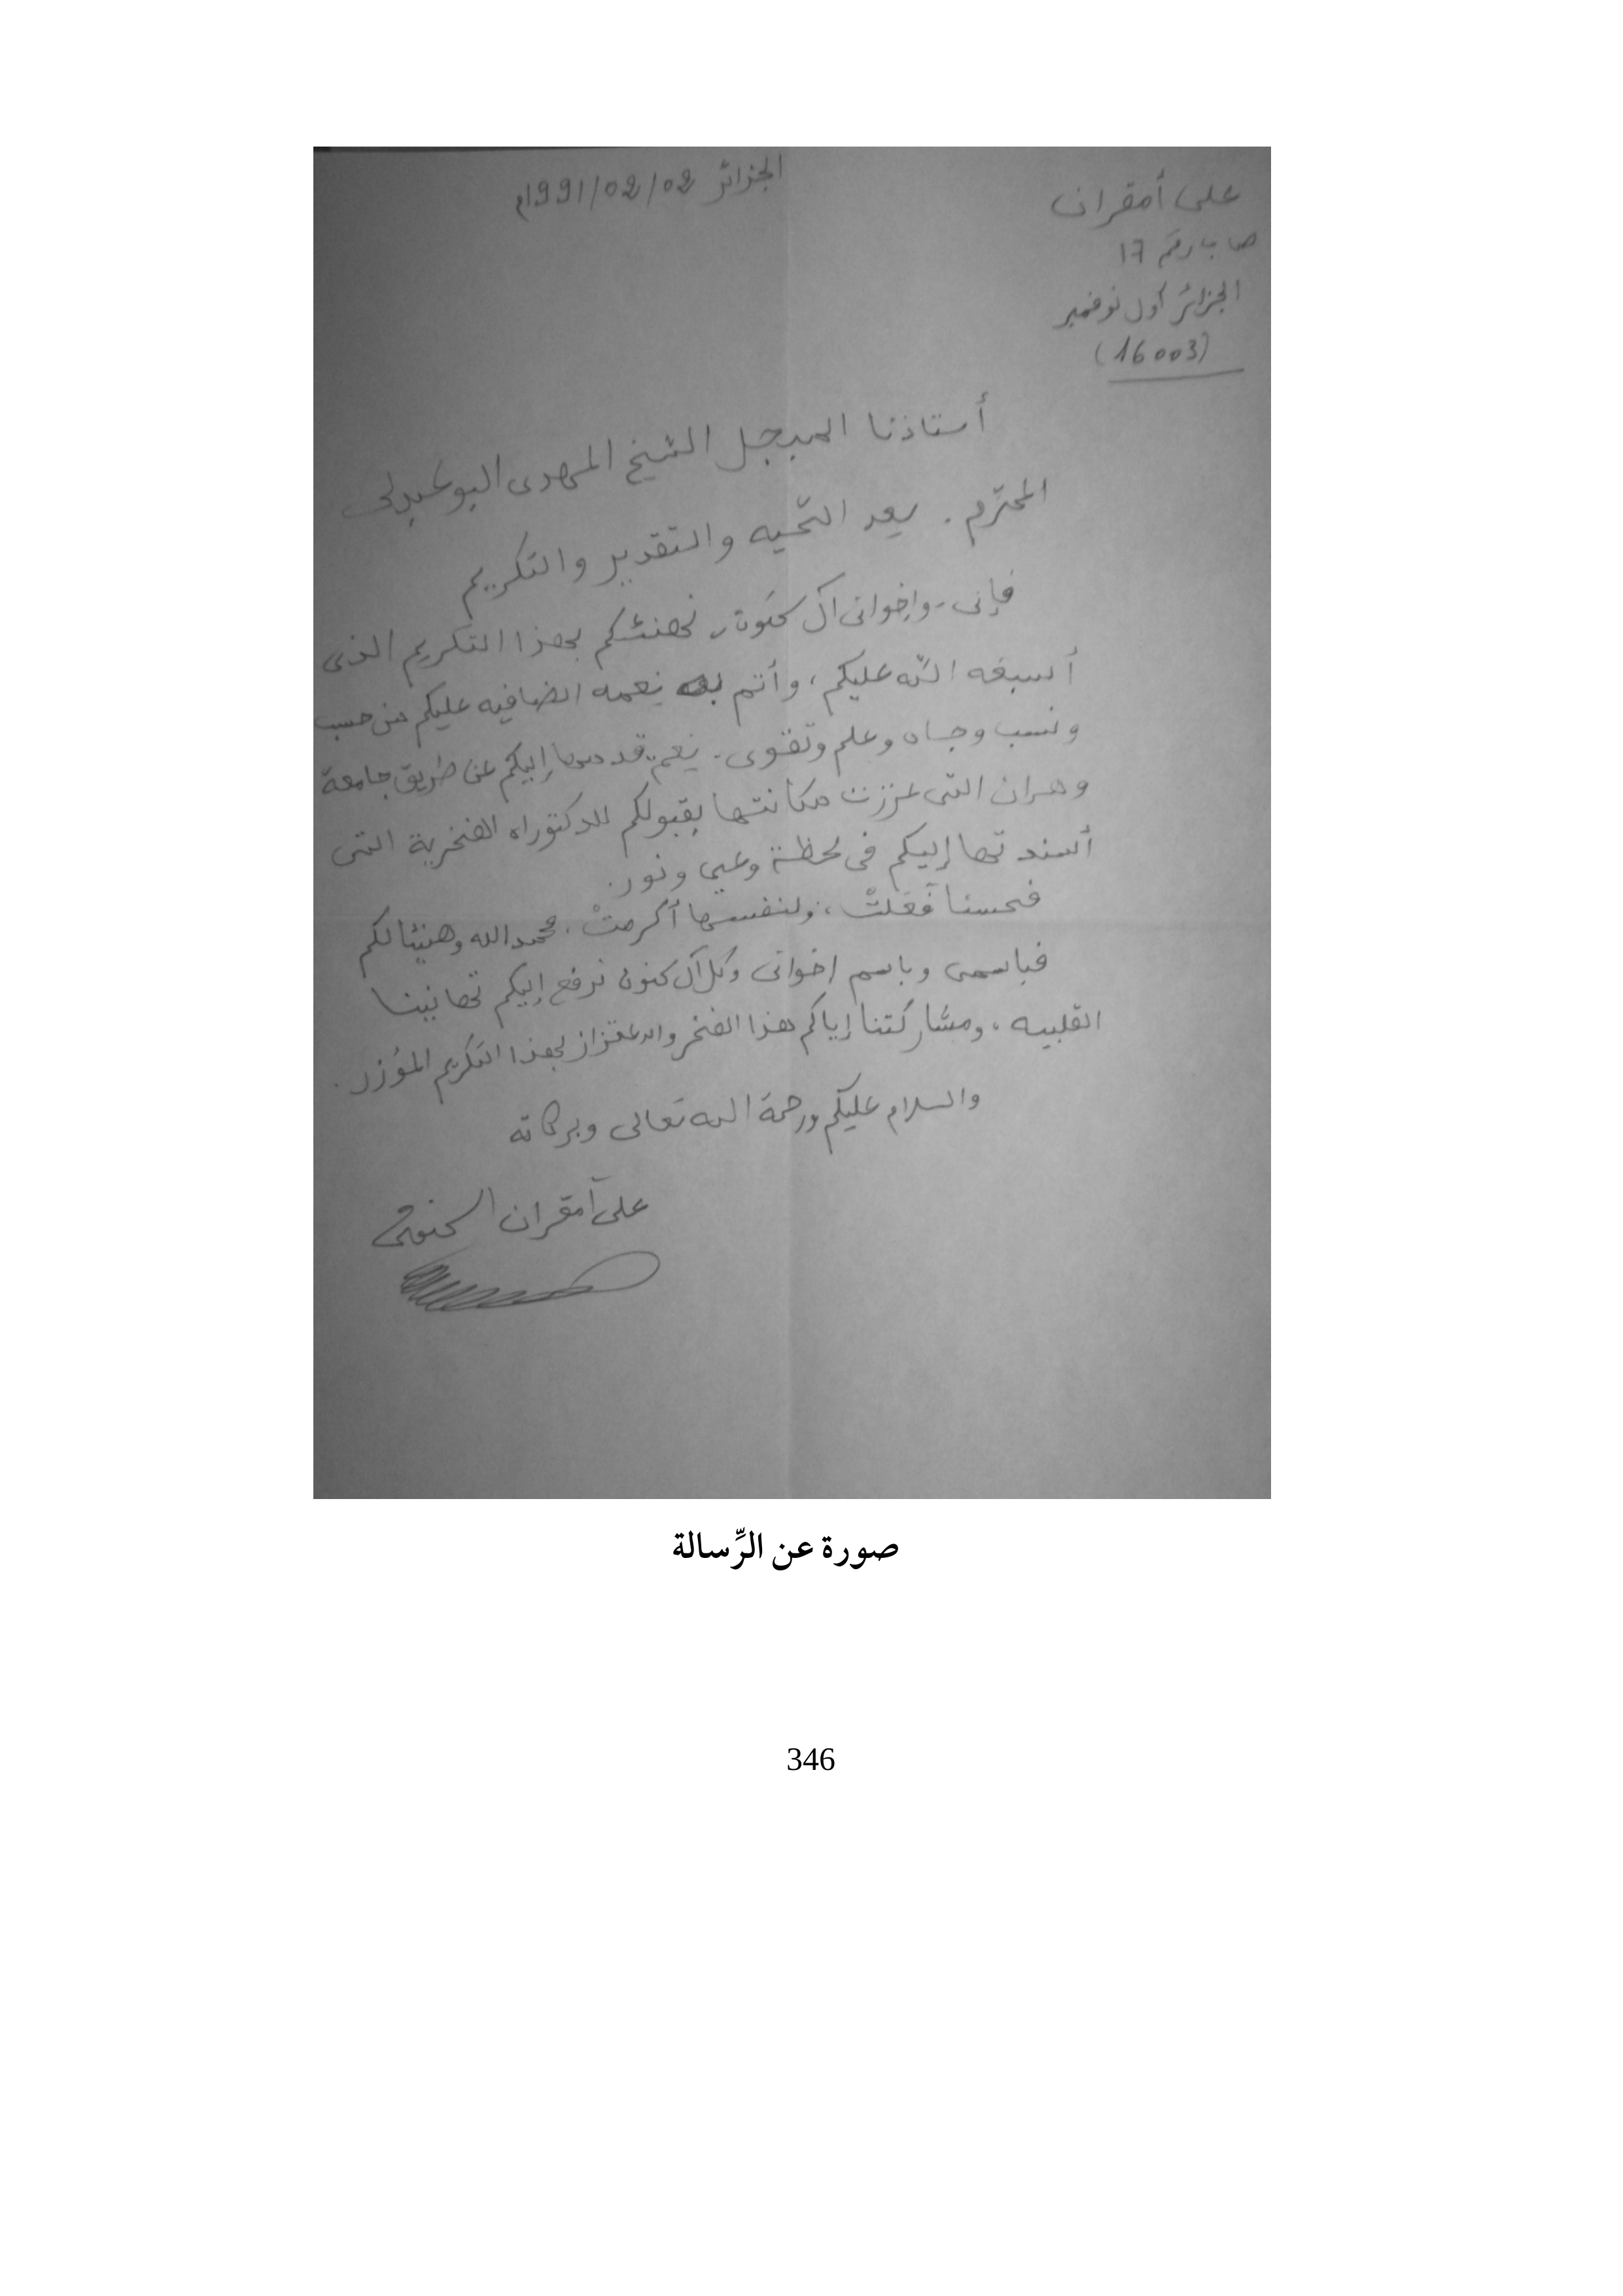 علي أمقران
ص ب رقم 17
الجزائر أول نوفمبر
(16003)
الجزائر 02/02/1991م
أستاذنا المبجل الشيخ المهدي البوعبدلي
المحترم. بعد التحيه والتقدير والتكريم
فإني - وإخواني آل كنون - نهنئكم بهذا التكريم الذي
أسبغه الله عليكم، وأتم به نعمه الضافيه عليكم من حسب
ونسب وجاه وعلم وتقوى. نعم. قدمها إليكم عن طريق جامعة
وهران التي عززت مكانتها بقبولكم للدكتوراه الفخرية التي
أسندتها إليكم في لحظة وعي ونور.
فحسنا فَعَلتْ، ولنفسها أكرمتْ، محمد الله وهنيئا لكم
فباسمي وباسم اخواني وكل آل كنون نرفع إليكم تهانينا
القلبيه، ومشاركتنا إياكم هذا الفخر والاعتزاز بهذا التكريم المؤزر.
والسلام عليكم ورحمة الله تعالى وبركاته
علي أمقران
صورة عن الرِّسالة
346